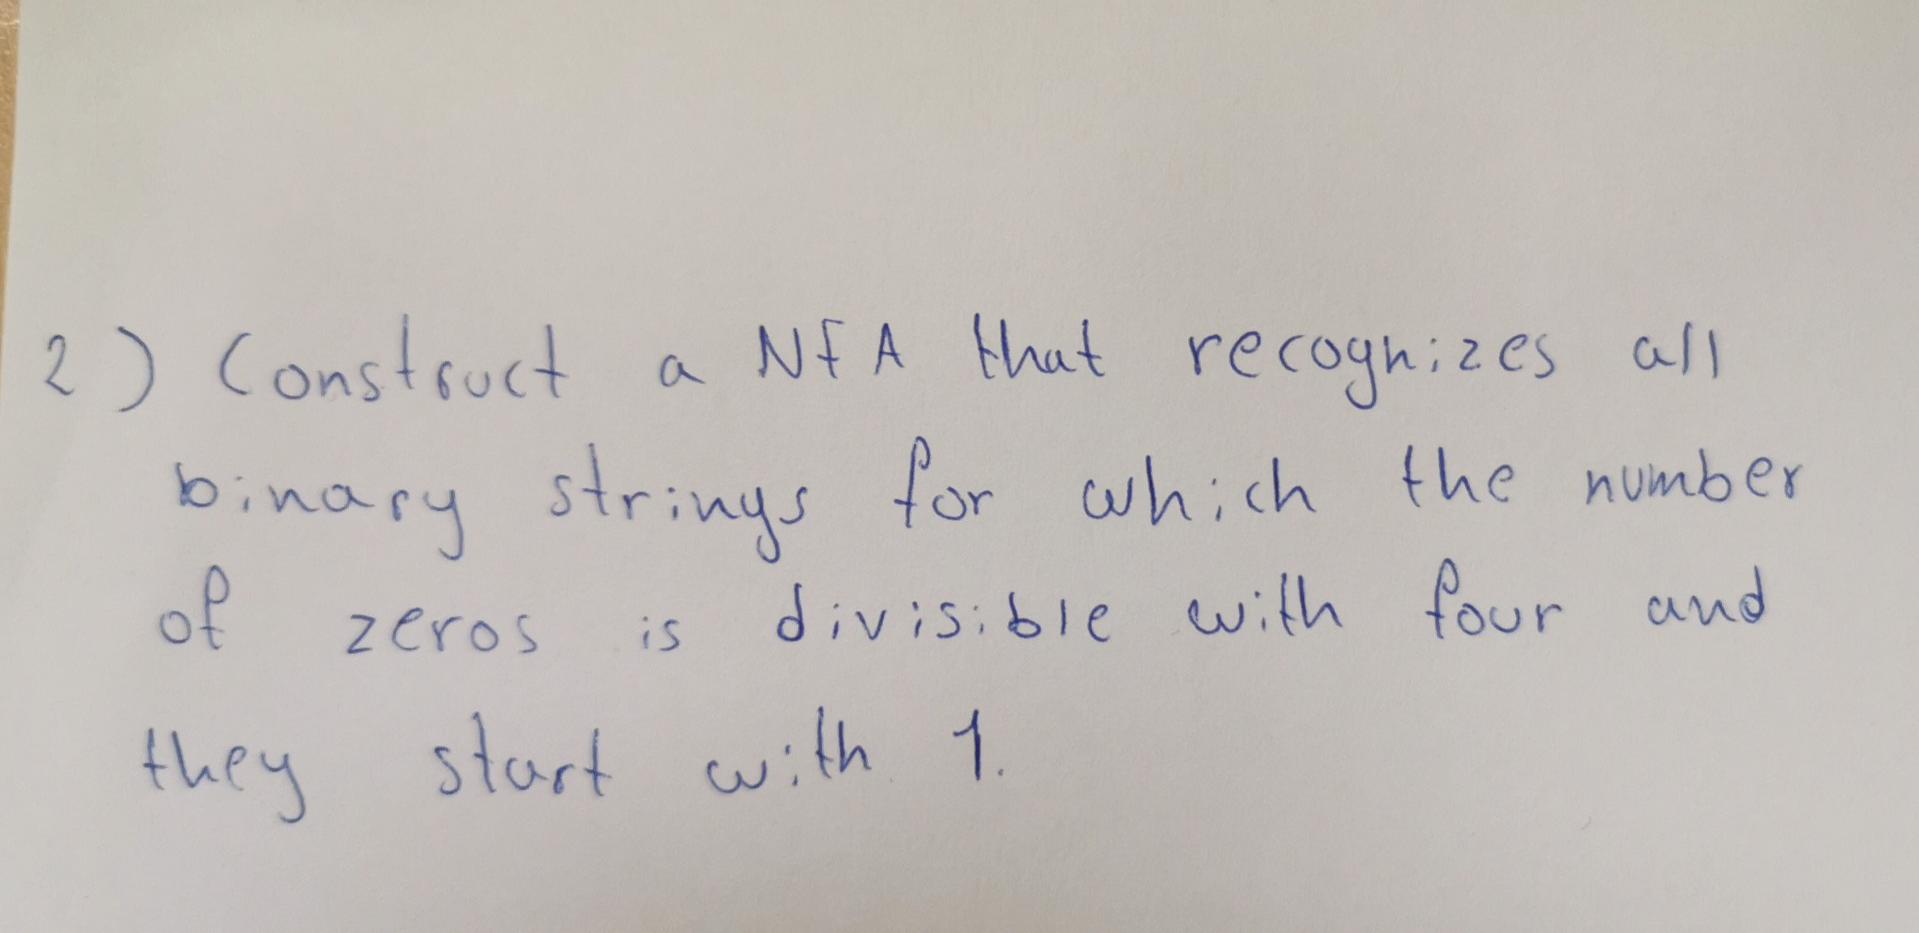 2) Construct a NFA that recognizes all
binary strings for which the number
of zeros is divisible with four and
they start with 1.